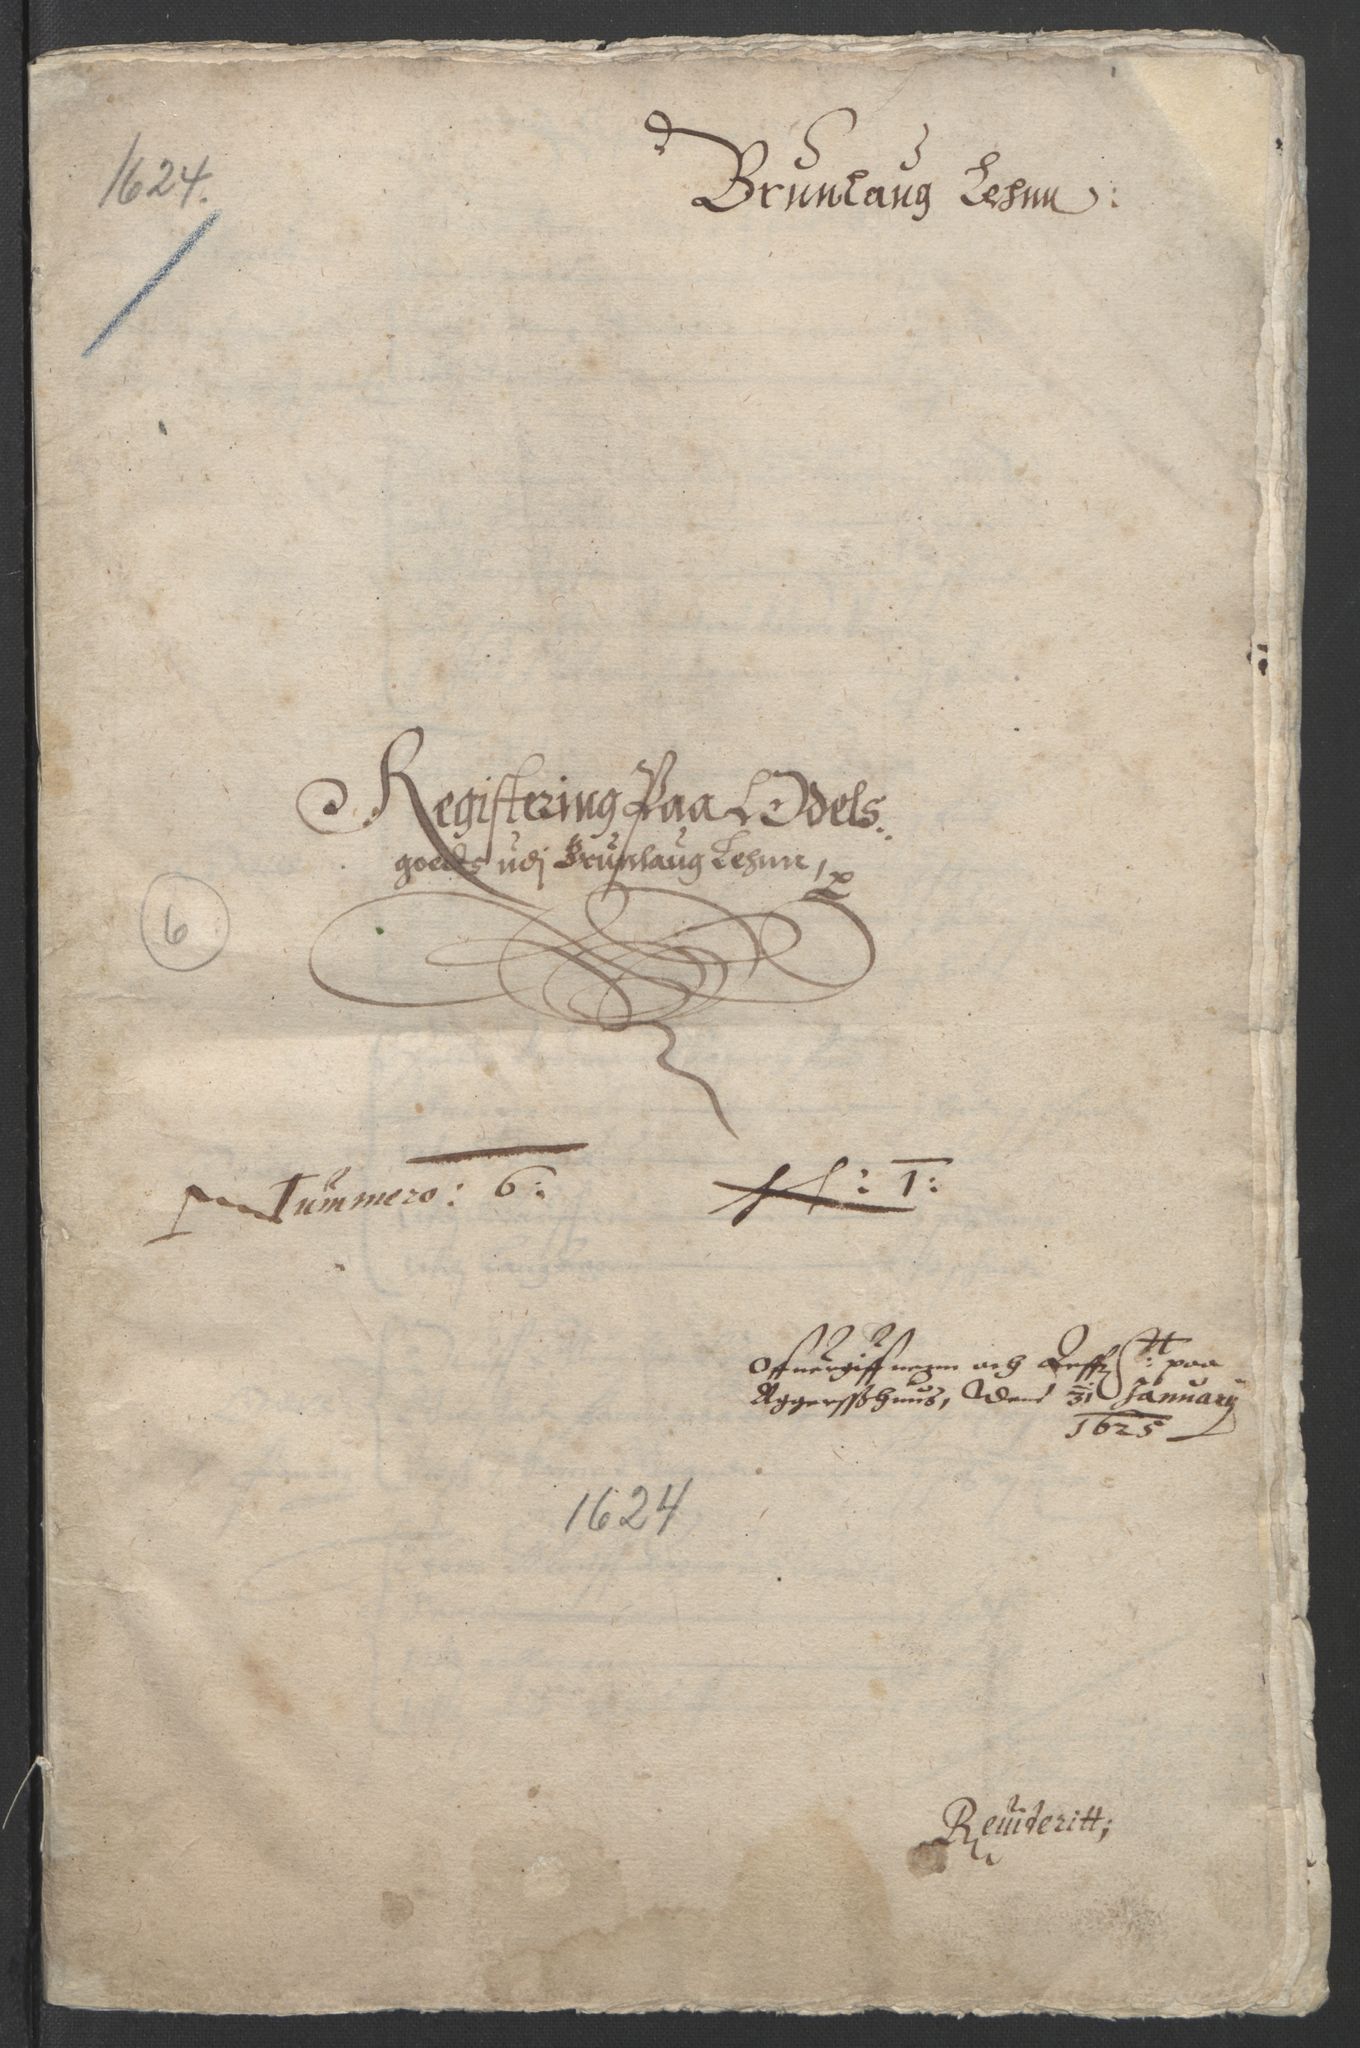 1624.
Brunlaug Lehnn:
Registering Paa Odels
goedts udj Brunlaug Lehnn,
6
Nummero: 6:
1:
Offuergiffuenn och paa
Aggersshuus, Denn 31 January
1625
1624
Reuideritt;